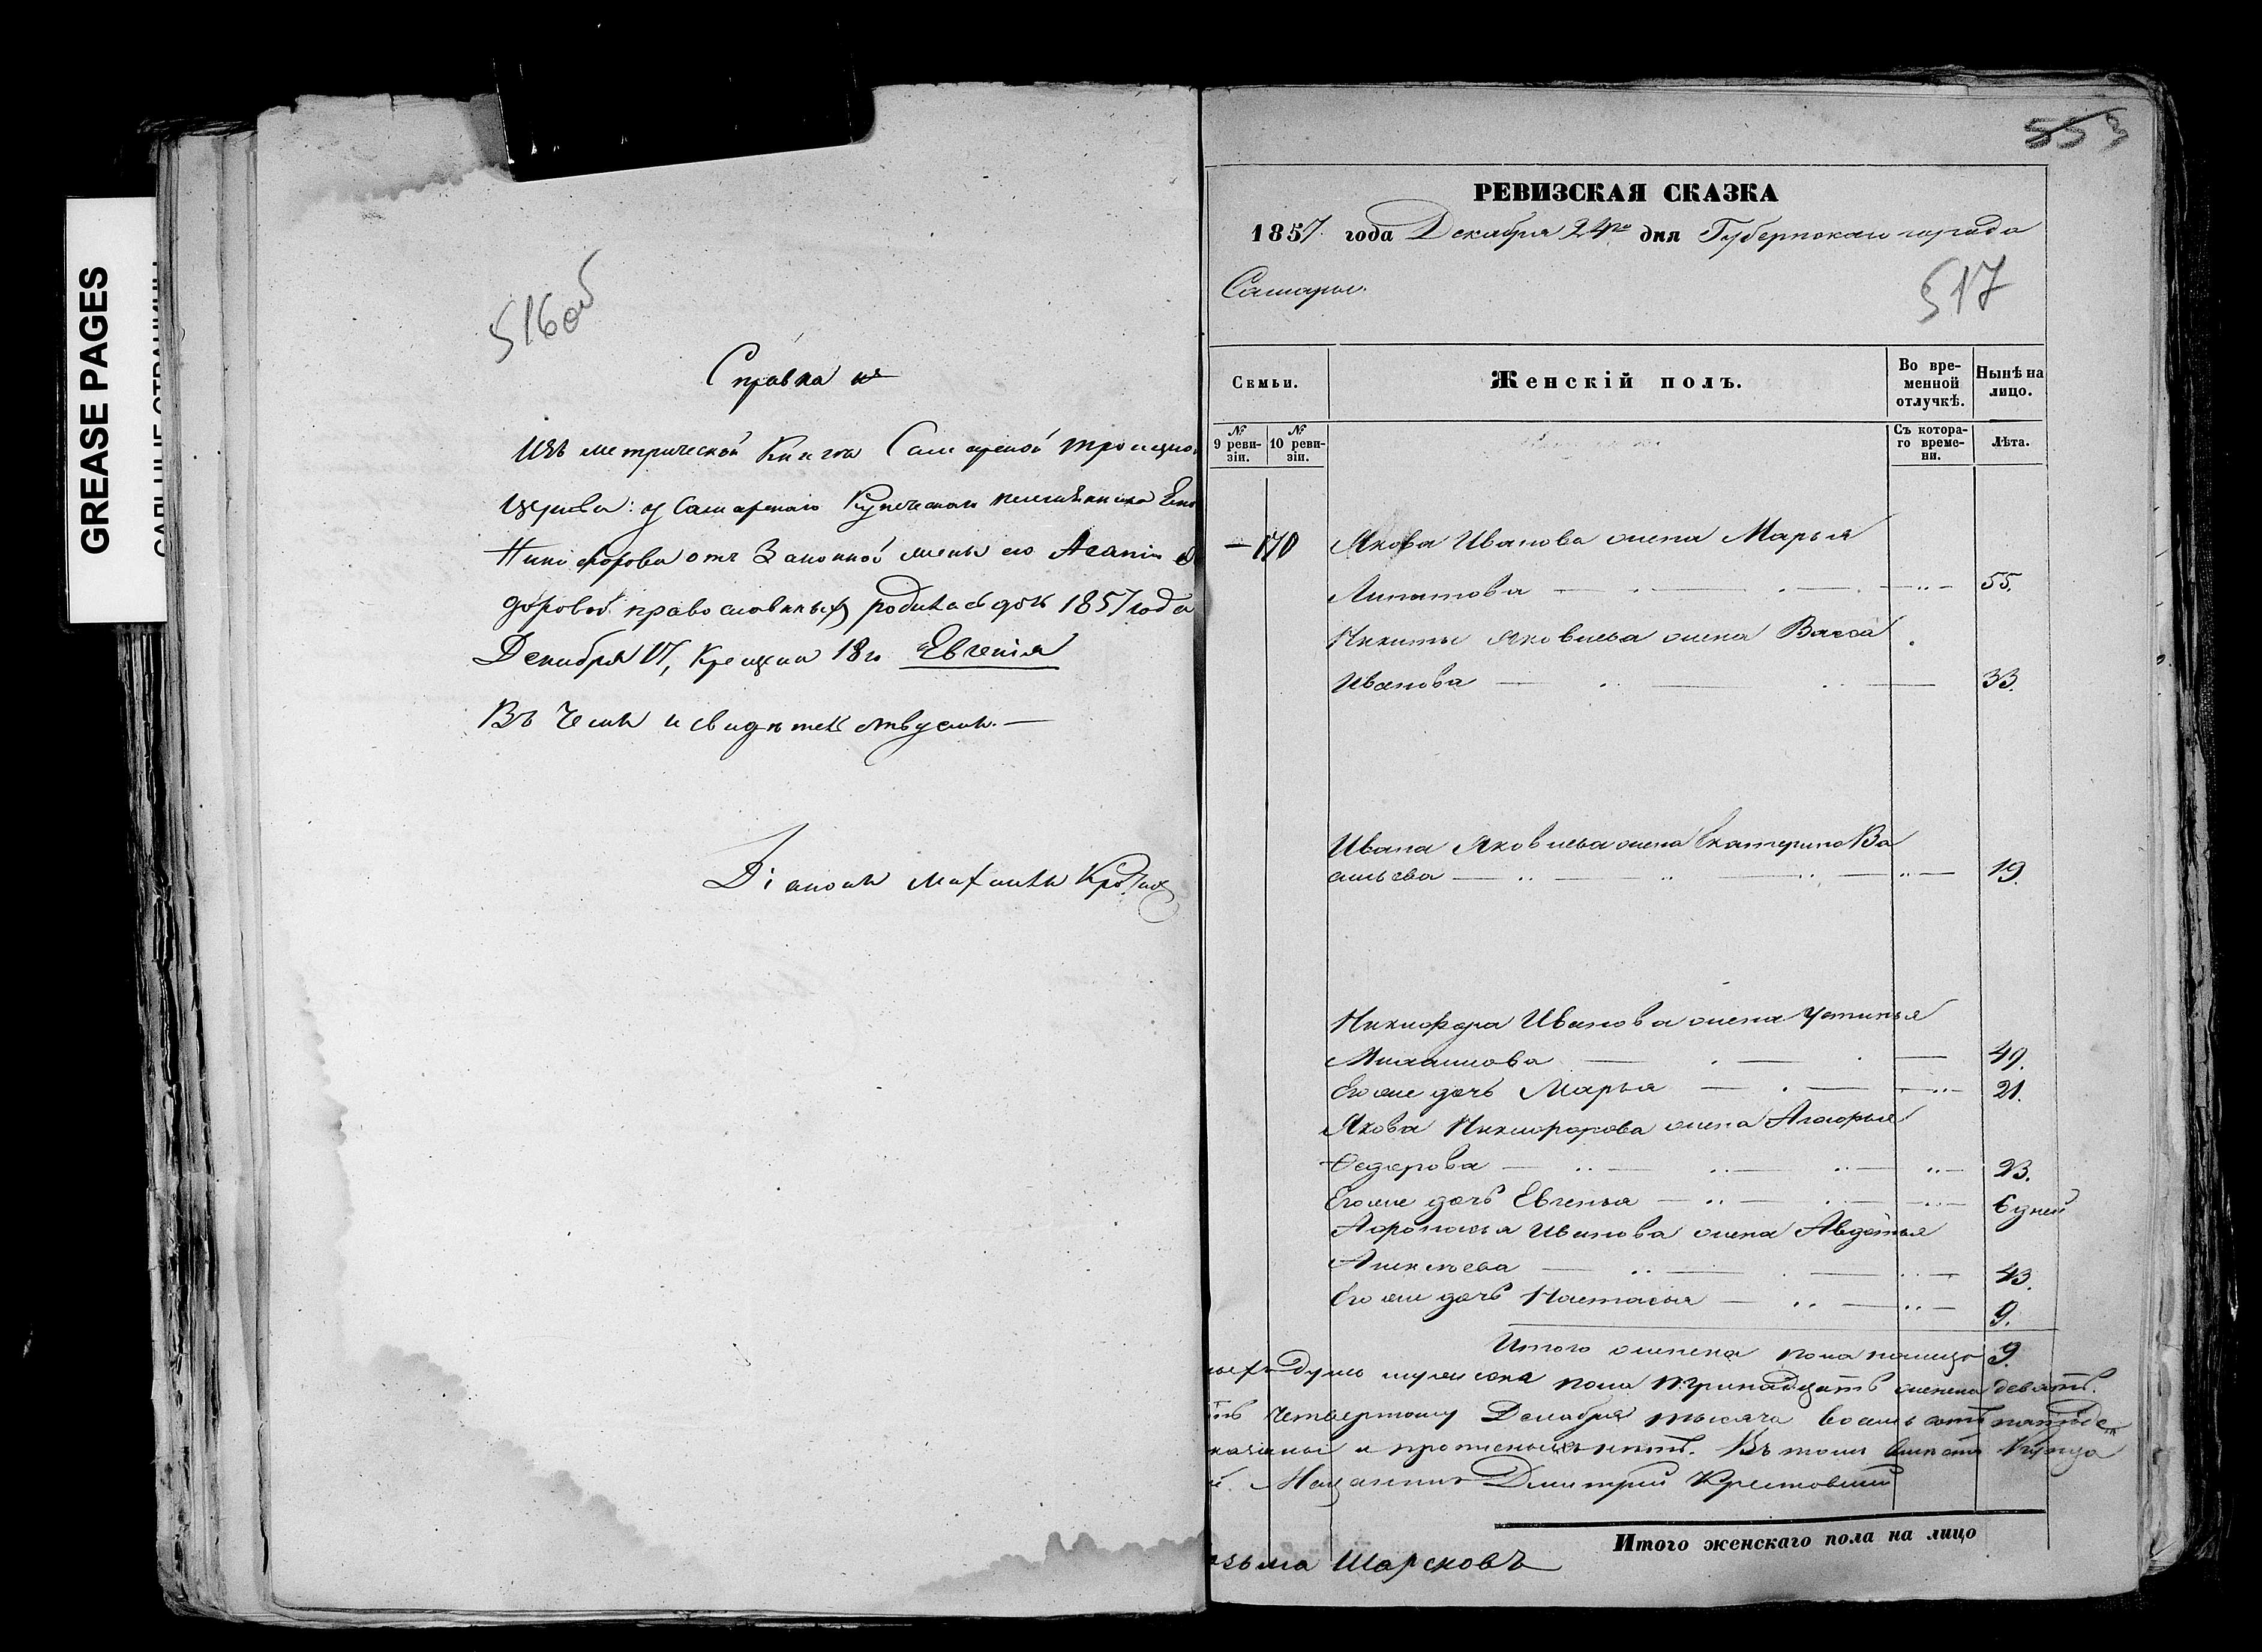 GREASE PAGES
516 об
Справка
Изъ метрической Книги Самарской Троицко
Церкви: у Самарскаго Купеческаго племянника
Никифорова от Законной жены его Агапіи
доровой православныхъ родилась дочь 1857 года
Декабря 17, крещена 18го Евгенія
Въ чемъ и свидѣтельствуемъ. —
Діаконъ
553
РЕВИЗСКАЯ СКАЗКА
1857 года Декабря 24го дня Губернскаго города
Самары.
517
Семьи.
Женскій полъ.
Во вре-
менной
отлучкѣ.
Нынѣ на
лицо.
№ 9 реви-
зіи.
№ 10 реви-
зіи.
Съ котора-
го време-
ни.
Лѣта.
— 170 Якова Иванова жена Марья
Липатова 55.
Никиты Яковлева жена Васса
Иванова 33.
Ивана Яковлева жена Екатерина Ва
сильева 19.
Никифора Иванова жена Устинья
Михайлова 49.
Его же дочь Марья 21.
Якова Никифорова жена Агафья
Федорова 23.
Его же дочь Евгенья 6 дней
Афонасья Иванова жена Авдотья
Алексѣева 43.
Его же дочь Настасья 9.
Итого женска пола налицо 9.
душъ мужеска пола тринадцать женска девять.
четвертому Декабря тысяча восемьсотъ пятьде
и прописныхъ нѣтъ. Въ томъ вмѣсто Купца
Мещанинъ Дмитрий Крестовский
Итого женскаго пола на лицо
озьма Шарсковъ